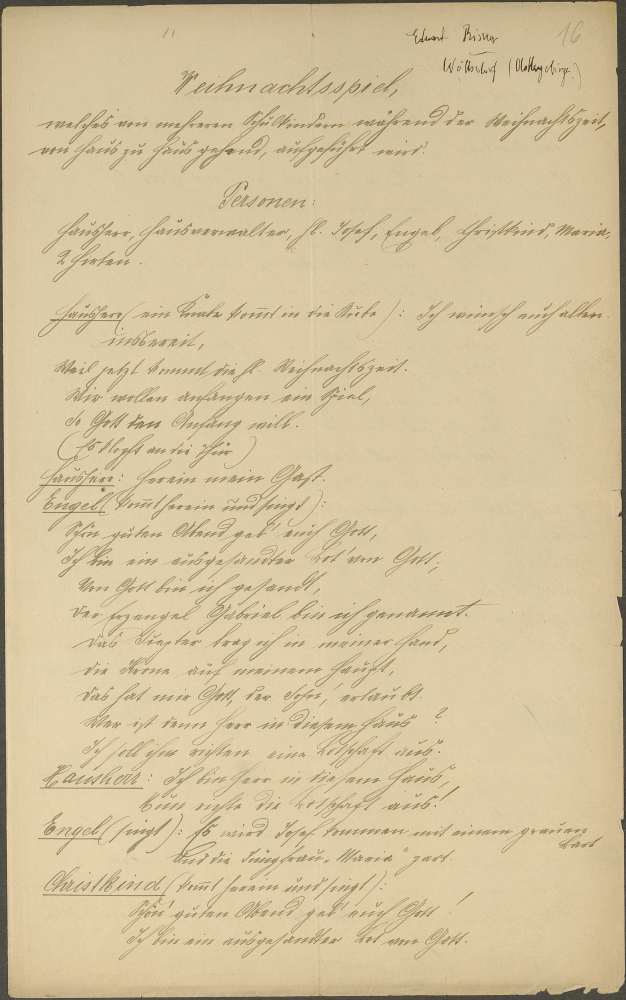 11
16
Eduard
Wölfelsdorf
Weihnachtsspiel,
welches von mehreren Schulkindern während der Weihnachtszeit,
von Haus zu Haus gehend, aufgeführt wird.
Personen:
Hausherr, Hausverwalter, hl. Josef, Engel, Christkind, Maria,
2 Hirten.
Hausherr (ein Knabe kommt in die Stube): Ich wünsch euch allen
insbereit,
Weil jetzt kommt die hl. Weihnachtszeit.
Wir wollen anfangen ein Spiel,
So Gott den Anfang will.
(Es klopft an die Thür)
Hausherr: Herein mein Gast.
Engel (kommt herein und singt):
Schön guten Abend geb' euch Gott,
Ich bin ein ausgesandter Bot' von Gott;
Von Gott bin ich gesandt,
Der Erzengel Gabriel bin ich genannt.
Das Szepter trag ich in meiner Hand,
die Krone auf meinem Haupt,
Das hat mir Gott, der Sohn, erlaubt.
Wer ist denn Herr in diesem Haus?
Ich soll ihm richten eine Botschaft aus.
Hausherr: Ich bin Herr in diesem Haus,
Nun richte die Botschaft aus!
Engel (singt): Es wird Josef kommen mit einem grauen
Bart
Und die Jungfrau „Maria" zart.
Christkind (kommt herein und singt):
Schön guten Abend geb' euch Gott!
Ich bin ein ausgesandter Bot von Gott.